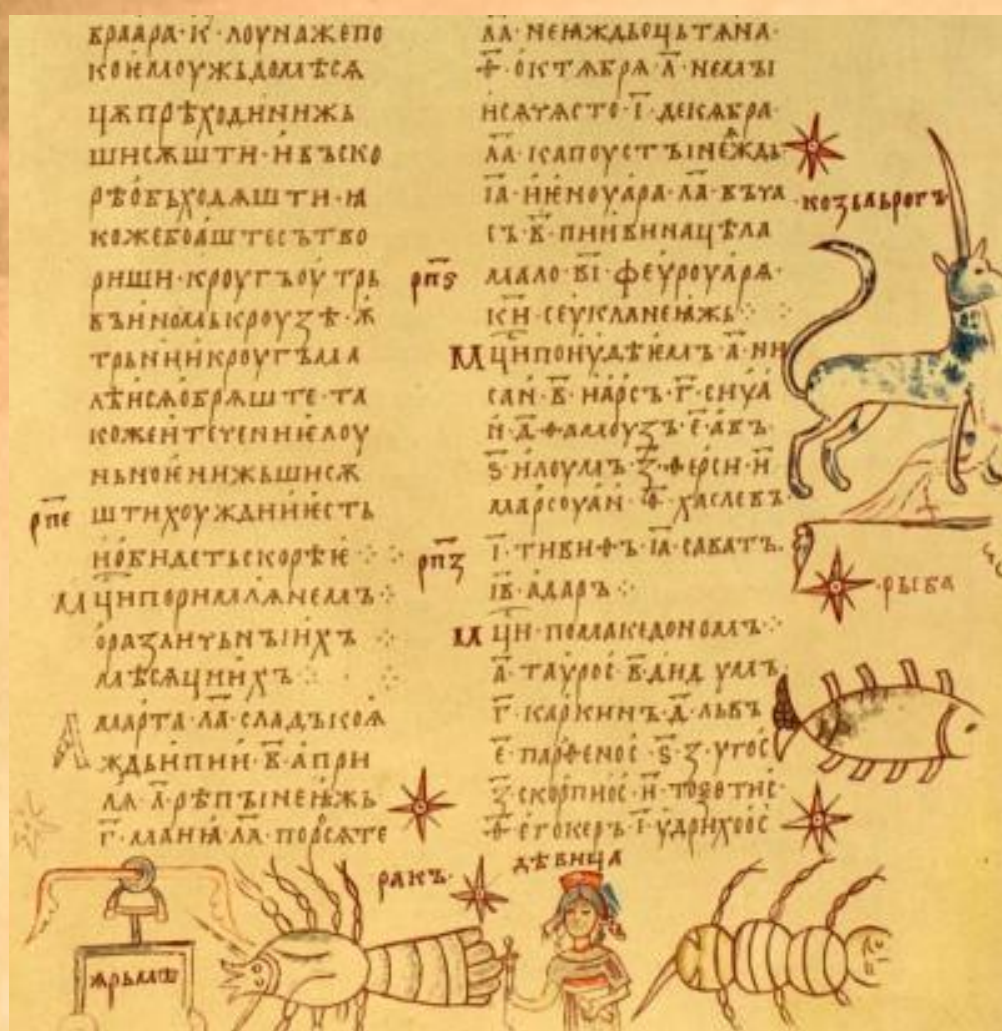 браара·к҃·лоунажепо
коимоужьдомѣсѧ
цѫпрѣходининжь
шисѫшти·ивъско
рѣобьходѧшти·ꙗ
кожебоаштесътво
риши·кроугъоутрь
вьниномькроузѣ·ѫ
трьнииикроугъма
лѣисѧобрѧште·та
кожеитєчениѥлоу
ньноѥнижьшисѫ
рп҃е штихоужднииѥсть
нобидетьскорѣѥ
м҃ципоримлѧнемъ
оразличьныихъ
мѣсѧциихъ
а҃ марта·ла҃·сладъкоꙗ
ждьипии·в҃·апри
лѧ·л҃·рѣпыінеꙗжь
г҃·маиꙗ·ла҃·поросѧте
ла҃·неꙗждьоцьтана·
ѳ҃·октѧбрѧ·л҃·немъі
исѧчѧсто·і҃·декѧбра·
ла҃·капоустъінеꙗждь
іа҃·иѥноуара·ла҃·въча
съ·в҃·пиивинацѣла
рп҃ѕ мало·ві҃·феуроуарѧ·
ки҃·сеукланеꙗжь
м҃ципоиудѣімъ·а҃·ни
сан·в҃·иарсъ·г҃·сиуа
н·д҃·ѳамоузъ·е҃·авъ·
ѕ҃·илоумъ·з҃·ѳерси·и҃·
марсоуан·ѳ҃·хаслевъ
рп҃з і҃·тивиѳъ·іа҃·саватъ·
ів҃·адаръ
м҃ци·помакедономъ
а҃·таурос·в҃·дид умъ·
г҃·каркинъ·д҃·львъ
е҃·парѳенос·ѕ҃·зугос
з҃·скорпиос·и҃·тоѯотис·
ѳ҃·егокеръ·і҃·удрихоос
козьльрогъ
·рыба
ракъ·
дѣвица
ꙗрьмъ